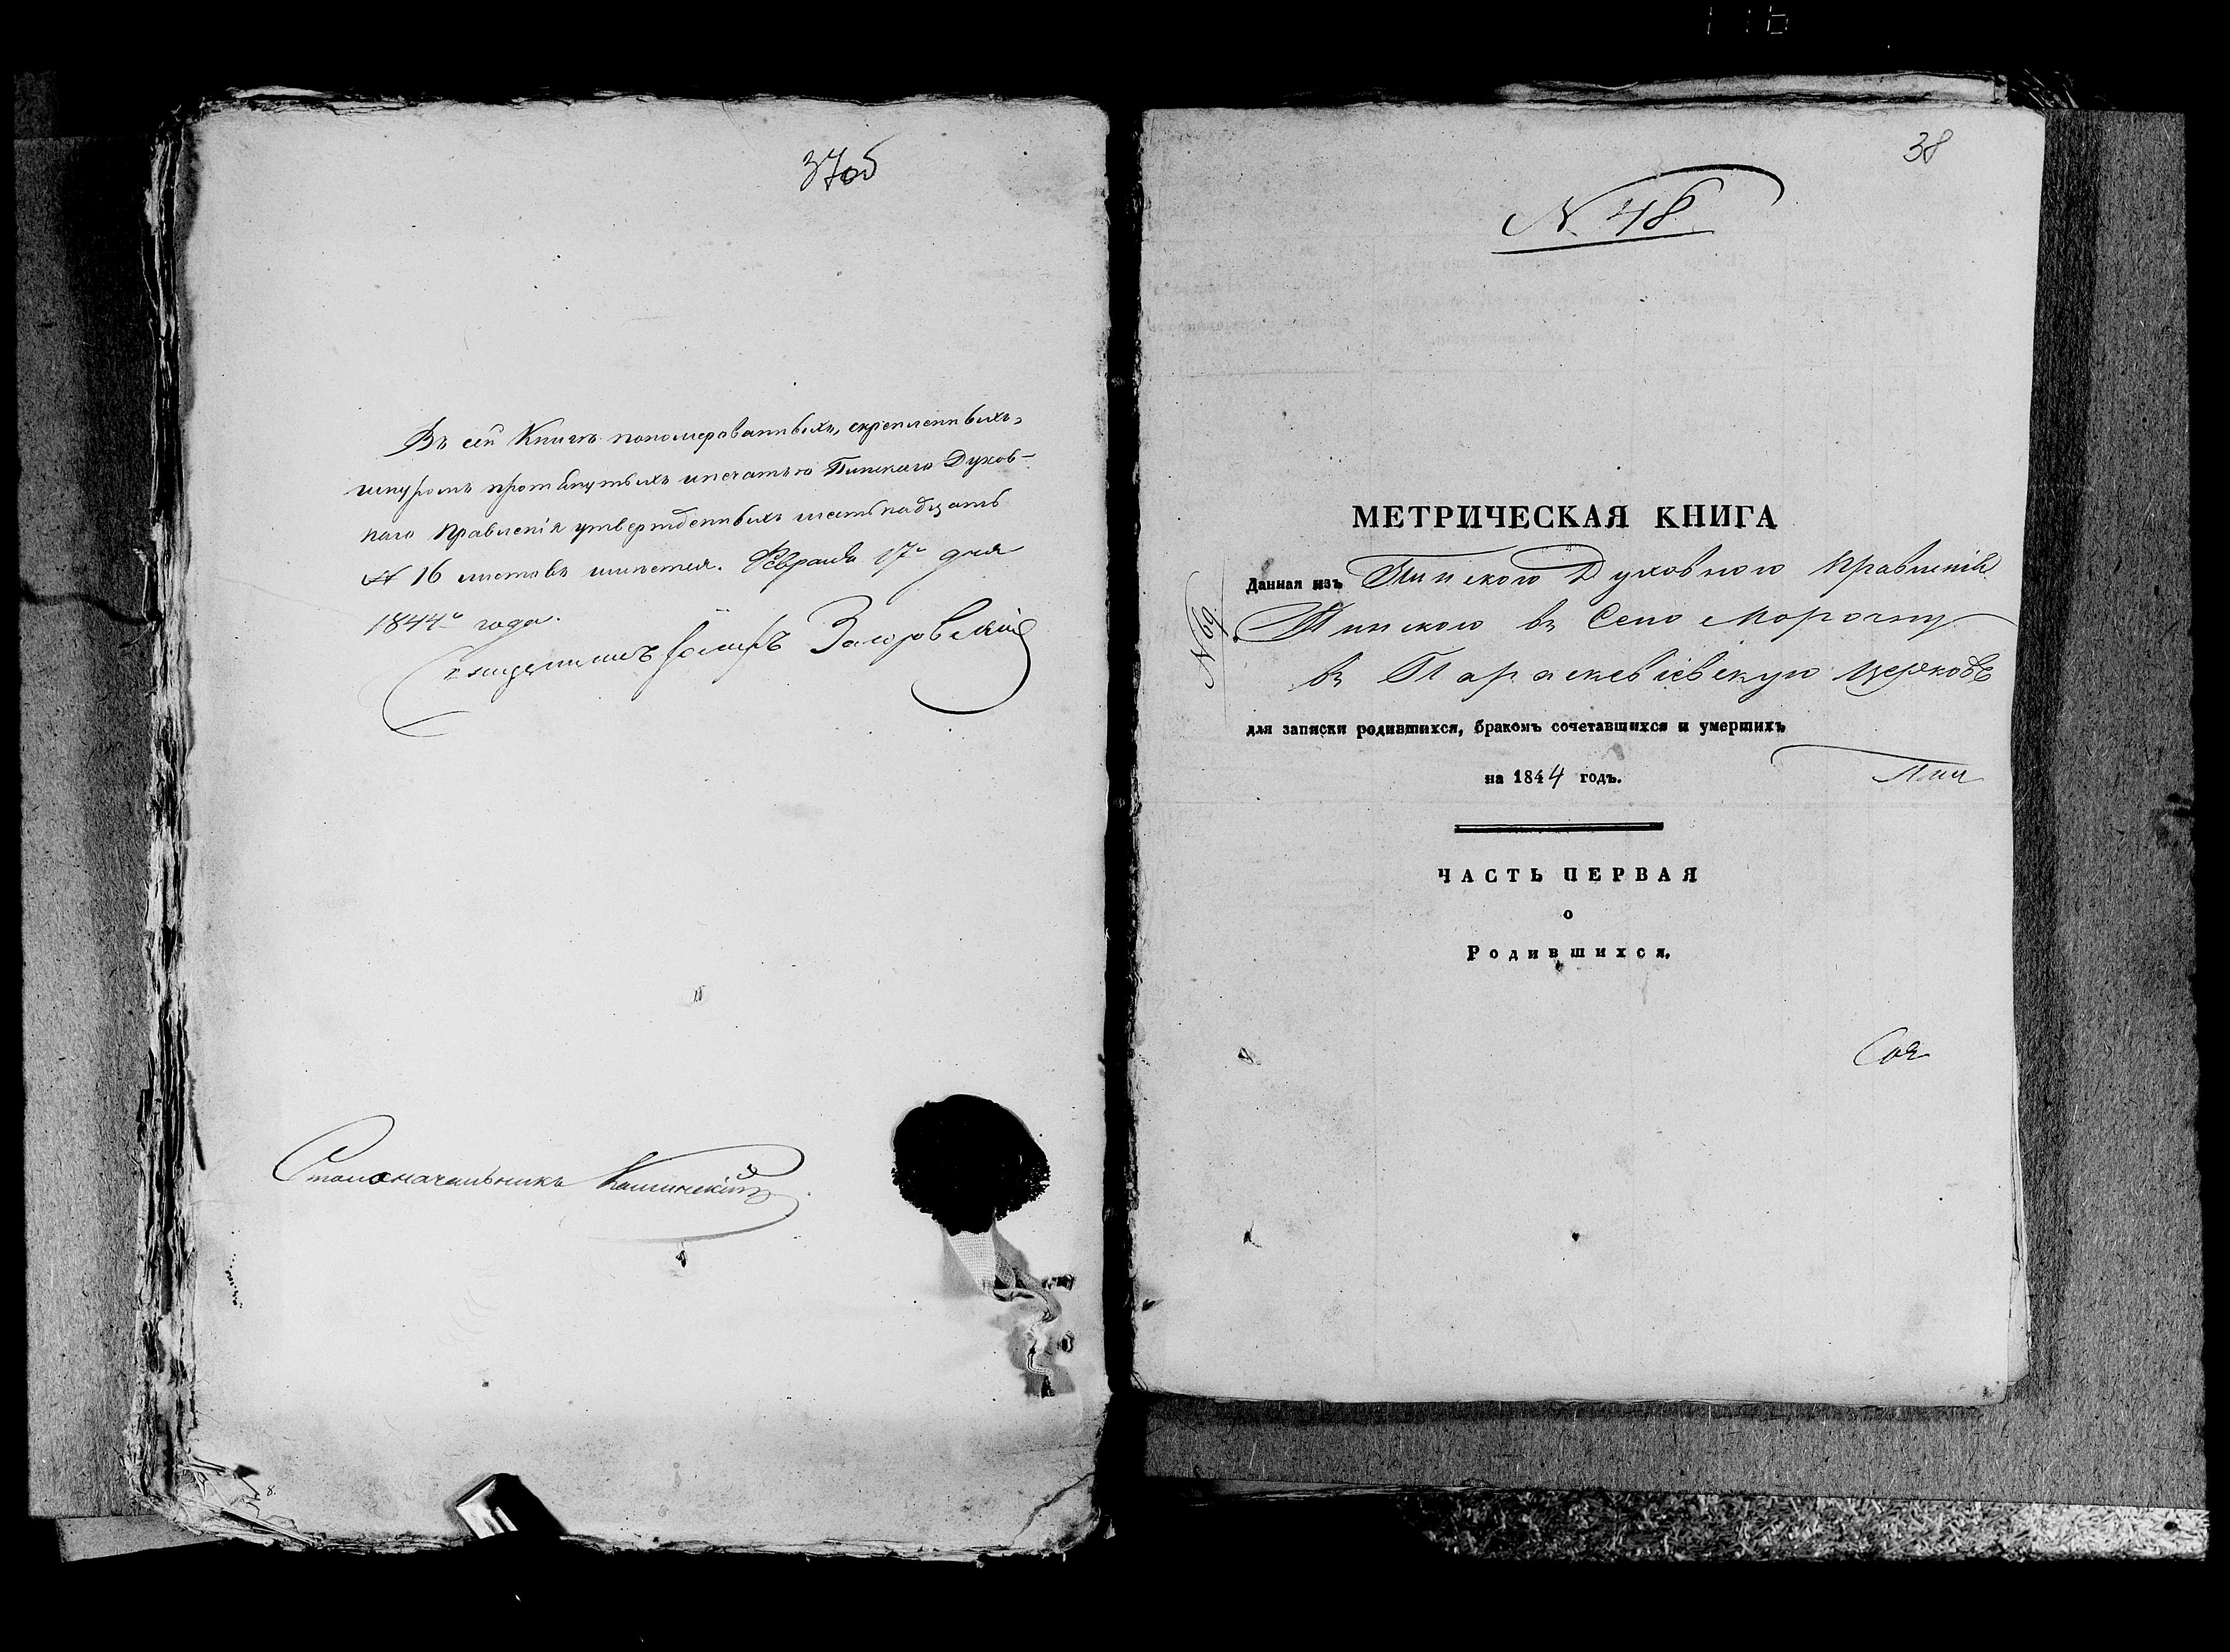 37об
Въ сей Книгѣ пономерованныхъ, скрепленныхъ,
шнуромъ протянутыхъ и печатью Пинскаго Духов-
наго Правленія утвержденныхъ шестьнадцать
№ 16 листовъ имѣется. Февраля 17го дня
1844го года.
Священникъ Іосифъ Загоровскій
Столоначальникъ
38
N 48
МЕТРИЧЕСКАЯ КНИГА
Данная изъ Пинского Духовного Правленія
Пинского въ Село Морочну
въ Параскевіевскую церковь
для записки родившихся, бракомъ сочетавшихся и умершихъ
на 1844 годъ.
Пин
ЧАСТЬ ПЕРВАЯ
о
Родившихся.